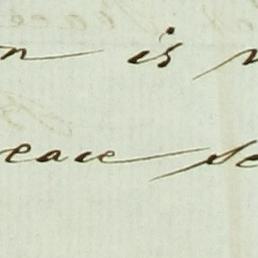 n is
eace se